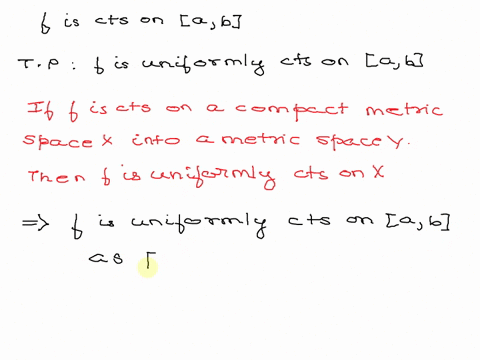 f is cts on [a,b]
T.P : f is uniformly cts on [a,b]
If f is cts on a compact metric
space X into a metric space Y.
Then f is uniformly cts on X
=> f is uniformly cts on [a,b]
as [